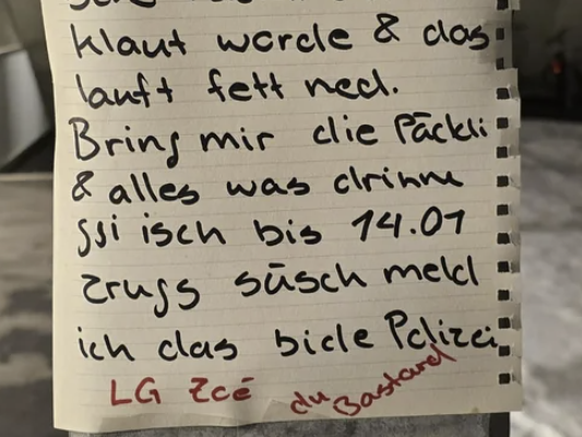 klaut worde & das
lauft fett ned.
Bring mir die Päckli
& alles was drinne
gsi isch bis 14.01
zrugg süsch meld
ich das bide Polizei
LG Zoé
du Bastard